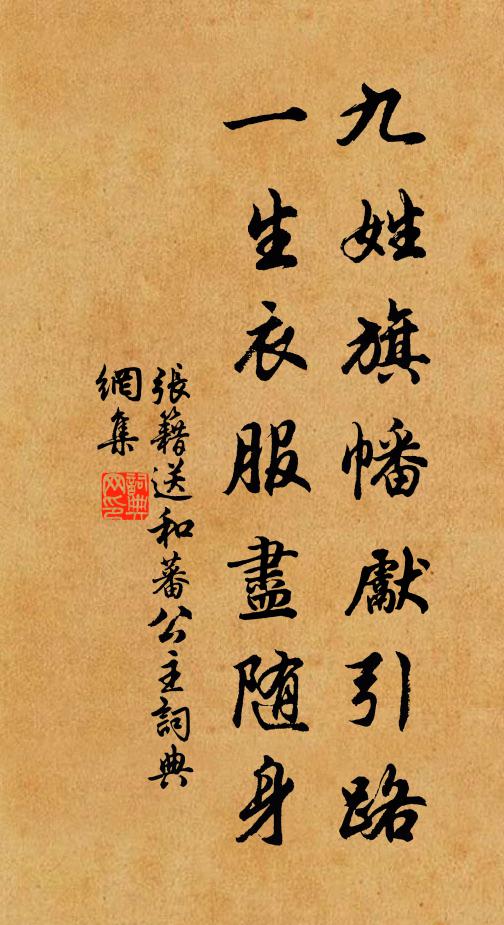 九姓旗幡獻引路
一生衣服盡随身
張籍送和蕃公主詞典
網集
詞典
网印